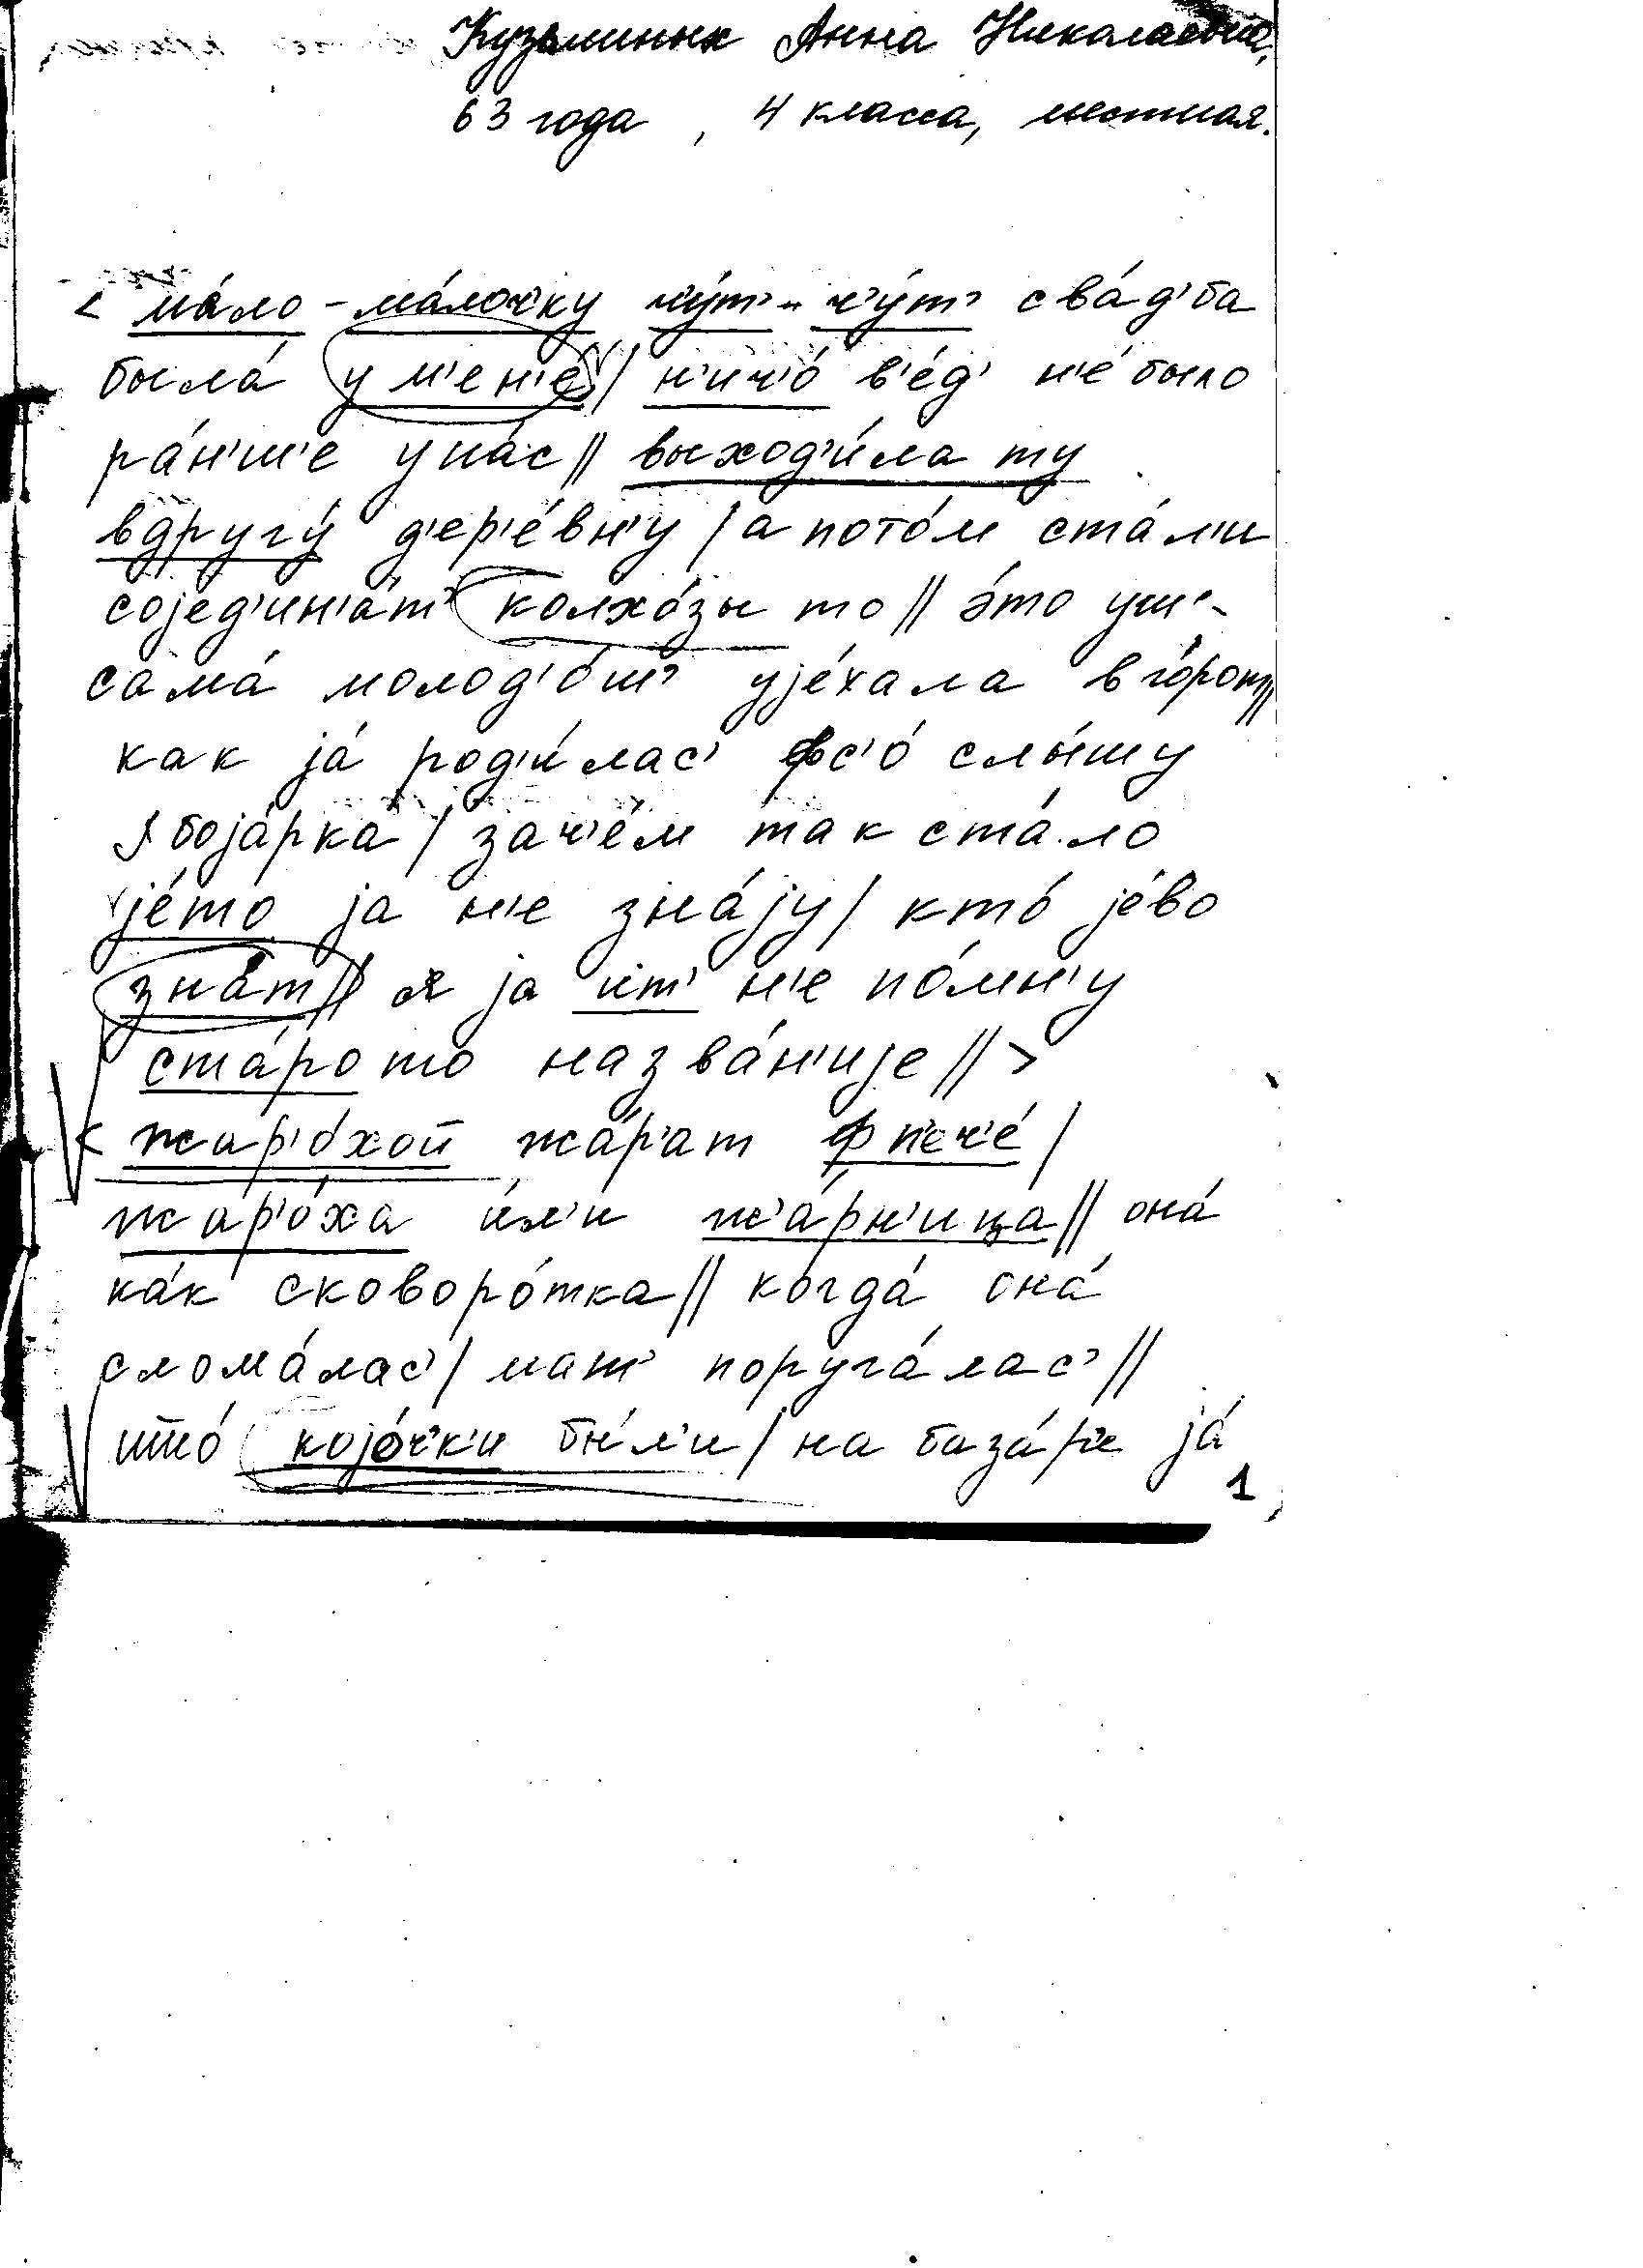 Кузьминых Анна Николаевна,
63 года, 4 класса, местная.
< ма́ло-ма́лоч'ку ч'у́т'-ч'у́т' сва́д'ба
была́ у м'ен'е́ / н'ич'о́ в'е́д' н'е́ было
ра́н'ш'е у на́с // выход'и́ла ту
вдругу́ д'ер'е́вн'у / а пото́м ста́л'и
соjед'ин'а́т' колхо́зы то // э́то уш'-
сама́ молод'о́ш' уjе́хала в го́рот //
как jа́ род'и́лас' фс'о́ слы́шу
боjа́рка / зач'е́м так ста́ло
jе́то jа н'е зна́jу / кто́ jе́во
зна́т // jа ит' н'е по́мн'у
ста́рото назва́н'иjе // >
< жар'о́хой жа́р'ат ф п'еч'е́ /
жар'о́ха и́л'и ж'а́рн'ица // она́
ка́к сковоро́тка // когда́ она́
слома́лас' / мат' поруга́лас' //
што́ коjо́ч'к'и бы́л'и / на база́р'е jа́
1